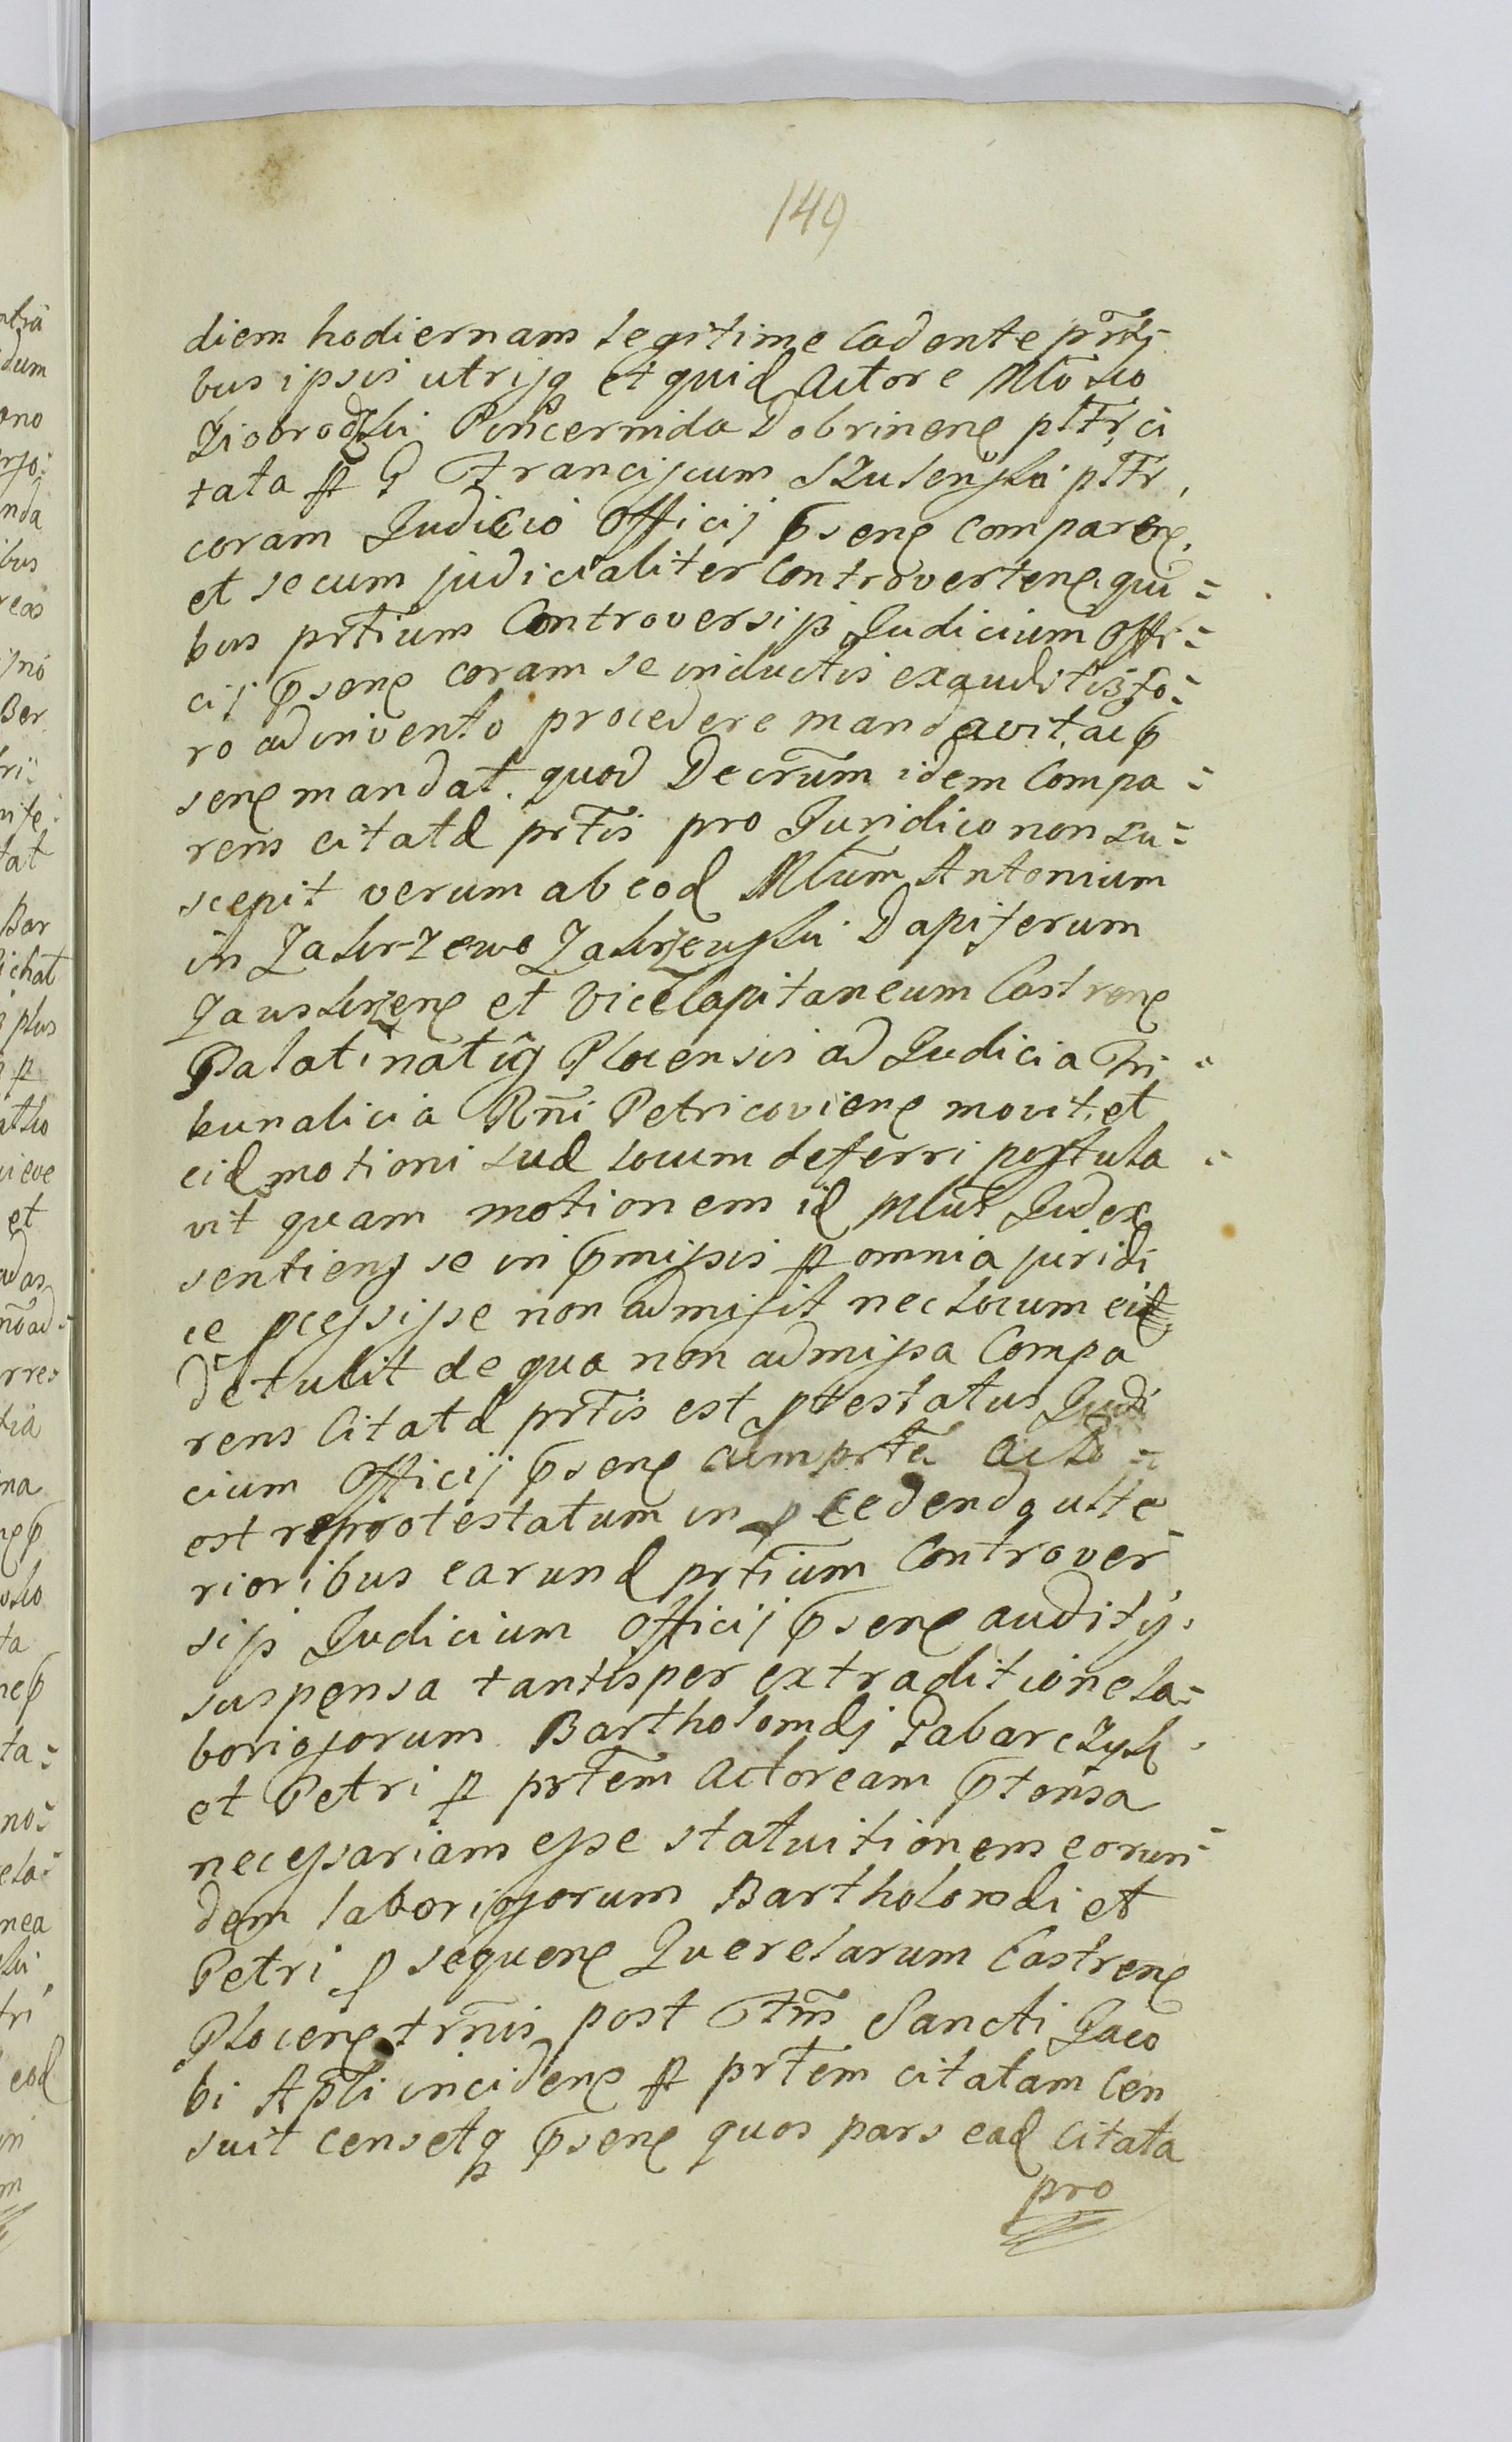 149
diem hodiernam legitime Cadente prti
bus ipsis utrisq et quid Actore Mfco
Ziobrodzki Pincernida Dobrinens pltr, ci
tata per G Franciscum Szulenski pltr,
coram Judicio Officij psens Comparens,
et secum judicialiter Controvertens qui=
bus prtium Controversijs Judicium Offi=
cij psens coram se inductis exauditis fo=
ro adinvento procedere mandavit, ac p
sens mandat. quod Decrum idem Compa=
rens citatæ prtis pro Juridico non su=
scepit verum ab eod Mfcum Antonium
in Zakrzewo Zakrzewski Dapiferum
Zauskrzens et ViceCapitaneum Castrens
Palatinatûs Plocensis ad Judicia Tri=
bunalicia Rñi Petricoviens movit, et
eid motioni suæ locum deferri postula=
vit quam motionem id Mfcus Judex
sentiens se in pmissis per omnia juridi
ce pcessisse non admisit nec locum eid
detulit de qua non admissa Compa
rens Citatæ prtis est ptestatus Judi
cium Officij psens cum prte Acto=
est reprotestatum in pcedendo ulte
rioribus earund prtium Controver=
sijs Judicium Officij psens auditis,
suspensa tantisper extraditione la=
boriosorum Bartholomæi Pabarczyk,
et Petri per prtem Actoream ptensa
necessariam esse statuitionem eorun=
dem laboriosorum Bartholomæi et
Petri p sequens Querelarum Castrens
Plocens trnis post Ftm Sancti Jaco
bi Apli incidens per prtem citatam Cen
suit censetq psens quos pars ead Citata
pro